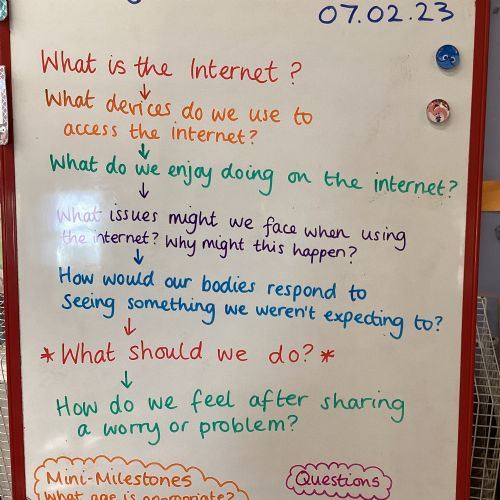 07.02.23
What is the Internet?
What devices do we use to
access the internet?
What do we enjoy doing on the internet?
What issues might we face when using
the internet? Why might this happen?
How would our bodies respond to
seeing something we weren't expecting to?
*What should we do?*
How do we feel after sharing
a worry or problem?
Mini-Milestones
Questions
What age is appropriate?